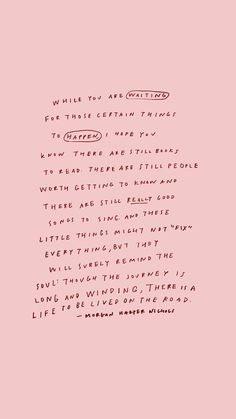 WHILE YOU ARE WAITING
FOR THOSE CERTAIN THINGS
TO HAPPEN, I HOPE YOU
KNOW THERE ARE STILL BOOKS
TO READ. THERE ARE STILL PEOPLE
WORTH GETTING TO KNOW AND
THERE ARE STILL REALLY GOOD
SONGS TO SING. AND THESE
LITTLE THINGS MIGHT NOT "FIX"
EVERYTHING, BUT THEY
WILL SURELY REMIND THE
SOUL: THOUGH THE JOURNEY IS
LONG AND WINDING, THERE IS A
LIFE TO BE LIVED ON THE ROAD.
— MORGAN HARPER NICHOLS